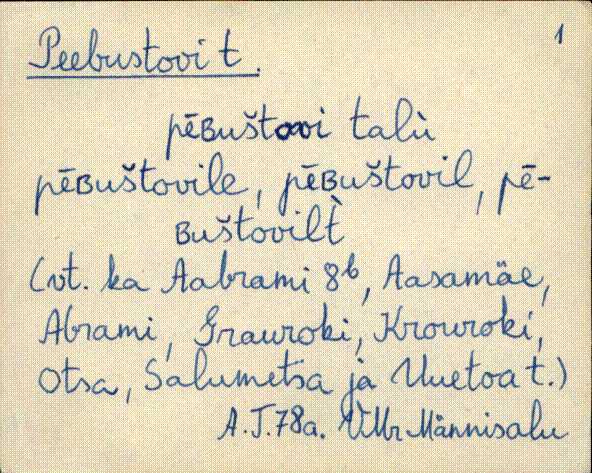 1
Peebustovi t.
pēʙuštovi talù
pēʙuštovile, pēʙuštovil, pē-
ʙuštovilt̀
(vt. ka Aabrami 8ᵇ, Aasamäe,
Abrami, Grauroki, Krouroki,
Otsa, Salumetsa ja Uuetoa t.)
A.J.78a. VMr Männisalu